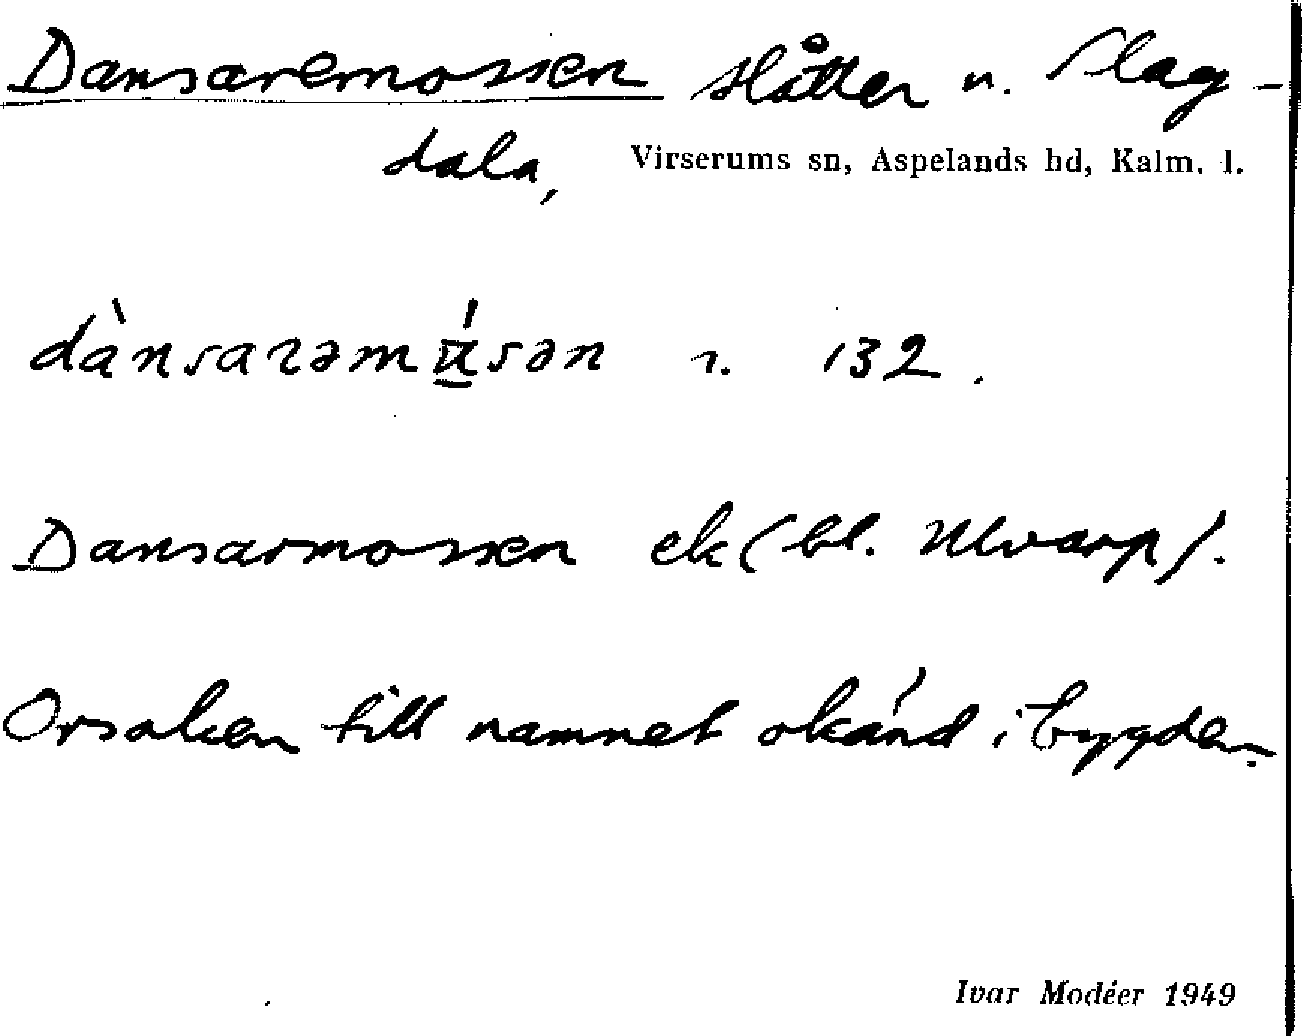 Dansaremossen slåtter n. Slag-
dala, Virserums sn, Aspelands hd, Kalm. l.
dànsarəmú̲sən r. 132.
Dansarmossen ek (bl. Ulvarp).
Orsaken till namnet okänd i bygden.
Ivar Modéer 1949